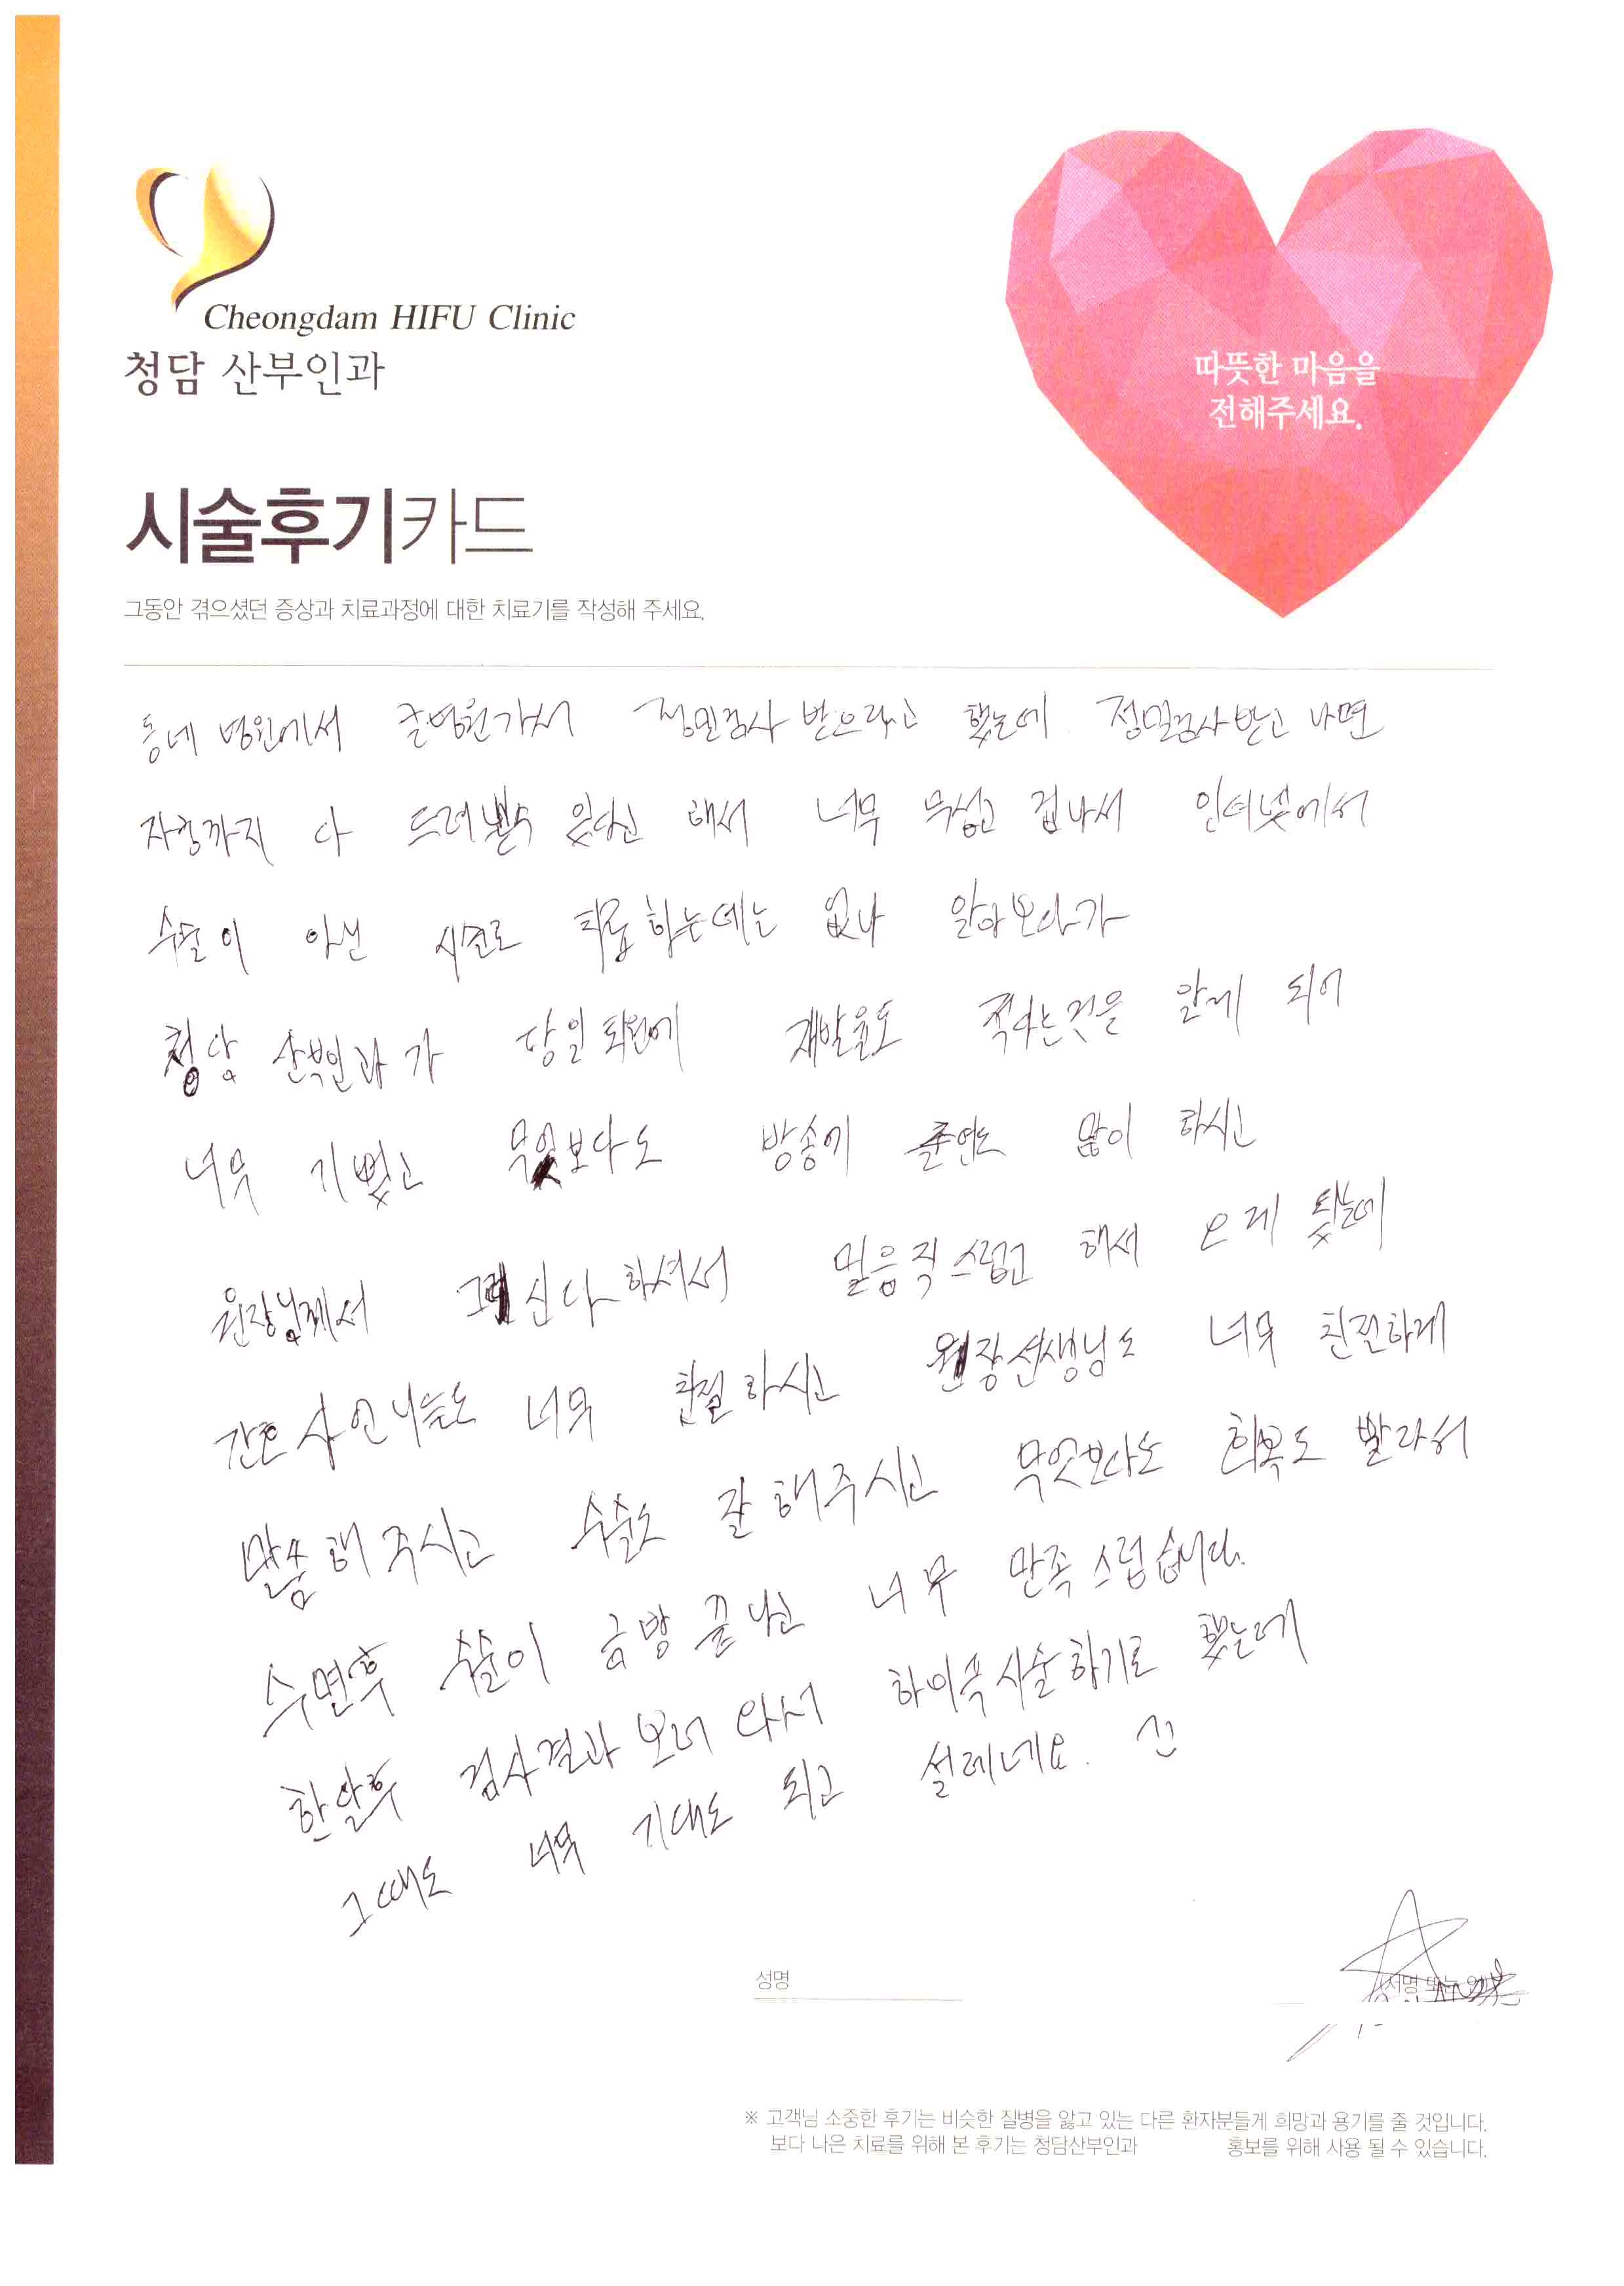 Cheongdam HIFU Clinic
청담 산부인과
따뜻한 마음을
전해주세요.
시술후기카드
그동안 겪으셨던 증상과 치료과정에 대한 치료기를 작성해 주세요.
동네 병원에서 큰병원가서 정밀검사 받으라고 했는데 정밀검사받고 나면
자궁까지 다 드려낼수 있다고 해서 너무 무섭고 겁나서 인터넷에서
수술이 아닌 시술로 치료하는데는 없나 알아보다가
청담 산부인과가 당일퇴원에 재발율도 적다는것을 알게 되어
너무 기뻤고 무엇보다도 방송에 출연도 많이 하시고
원장님께서 하셔서 믿음직스럽고 해서 오게 됐는데
간호사언니들도 너무 친절하시고 원장선생님도 너무 친절하게
말씀해주시고 수술도 잘해주시고 무엇보다도 회복도 빨라서
수면후 수술이 금방 끝나고 너무 만족스럽습니다.
한달후 검사결과 보러 와서 하이푸시술하기로 했는데
그때도 너무 기대도 되고 설레네요.
성명
서명 또는
※ 고객님 소중한 후기는 비슷한 질병을 앓고 있는 다른 환자분들게 희망과 용기를 줄 것입니다.
보다 나은 치료를 위해 본 후기는 청담산부인과 홍보를 위해 사용 될 수 있습니다.